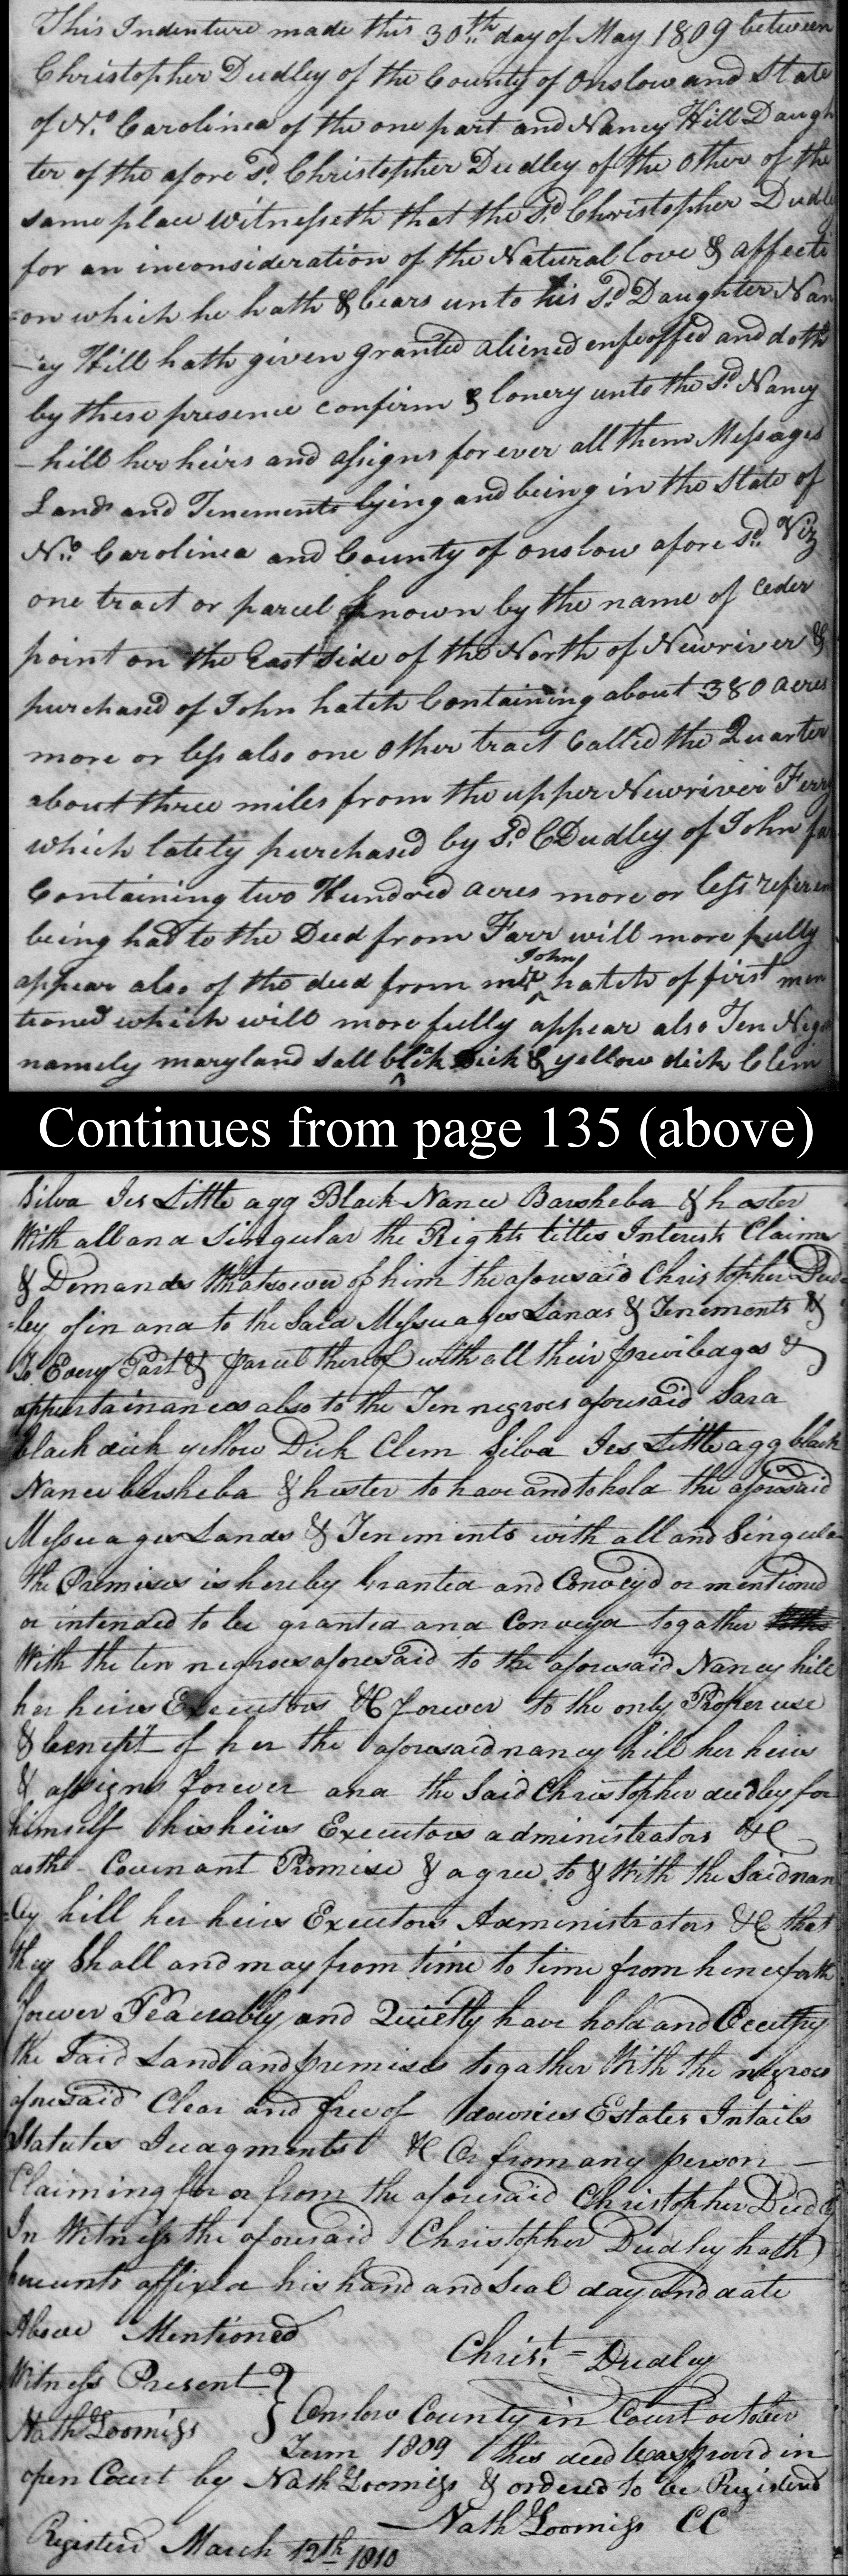 This Indenture made this 30th day of May 1809 between
Christopher Dudley of the County of Onslow and State
of No. Carolinea of the one part and Nancy Hill Daugh
ter of the afore sd. Christopher Dudley of the Other of the
same place Witnesseth that the Sd Christopher Dudley
for an inconsideration of the Natural love & affecti
=on which he hath & bears unto his Sd Daughter Nan
-cy Hill hath given granted aliened enfeoffed and doth
by these presence confirm & convey unto the sd. Nancy
-hill her heirs and assigns for ever all them Messages
Lands and Tenements lying and being in the State of
No. Carolinea and County of onslow afore sd. Viz
one tract or parcel known by the name of Ceder
point on the East side of the North of Newriver &
purchased of John hatch Containing about 380 acres
more or less also one other tract Called the Quarter
about three miles from the upper Newriver Ferry
which lately purchased by Sd C Dudley of John far
Containing two Hundred acres more or less referen
being had to the Deed from Farr will more fully
appear also of the deed from John hatch of first men
tioned which will more fully appear also Ten Neg
namely maryland Sall black Dick & yellow dick Clem
Continues from page 135 (above)
Silva Jes Little agg Black Nance Barsheba & hester
With all and Singular the Rights titles Interests Claims
& Demands Whatsoever of him the aforesaid Christopher Dud
=ley of in and to the Said Messuages Lands & Tenements &
To Every Part & parcel thereof with all their priviledges &
appertainances also to the Ten negroes aforesaid Sara
black dick yellow Dick Clem Silva Jes Little agg black
Nance barsheba & hester to have and to hold the aforesaid
Messuages Lands & Tenements with all and Singular
the Premises is hereby Granted and Convey'd or mentioned
or intended to be granted and Conveyd togather
With the ten negroes aforesaid to the aforesaid Nancy hill
her heirs Executors &C forever to the only Proper use
& benefit of her the aforesaid nancy hill her heirs
& assigns forever and the Said Christopher dudley for
himself his heirs Executors administrators &C
doth Covenant Promise & agree to & With the Said nan
=cy hill her heirs Executors Administrators &C that
they Shall and may from time to time from henceforth
forever Peaceably and Quietly have hold and Occupy
the Said Land and premises togather With the negroes
aforesaid Clear and free of dowries Estates Intails
Statutes Judgments &C Or from any person -
Claiming for or from the aforesaid Christopher Dudley
In Witness the aforesaid Christopher Dudley hath
hereunto affixed his hand and Seal day and date
Above Mentioned
Christ = Dudley
Witness Present
Nath Loomiss
Onslow County in Court october
Term 1809 this deed was provd in
open Court by Nath Loomiss & ordered to be Registerd
Nath Loomiss CC
Registerd March 12th 1810